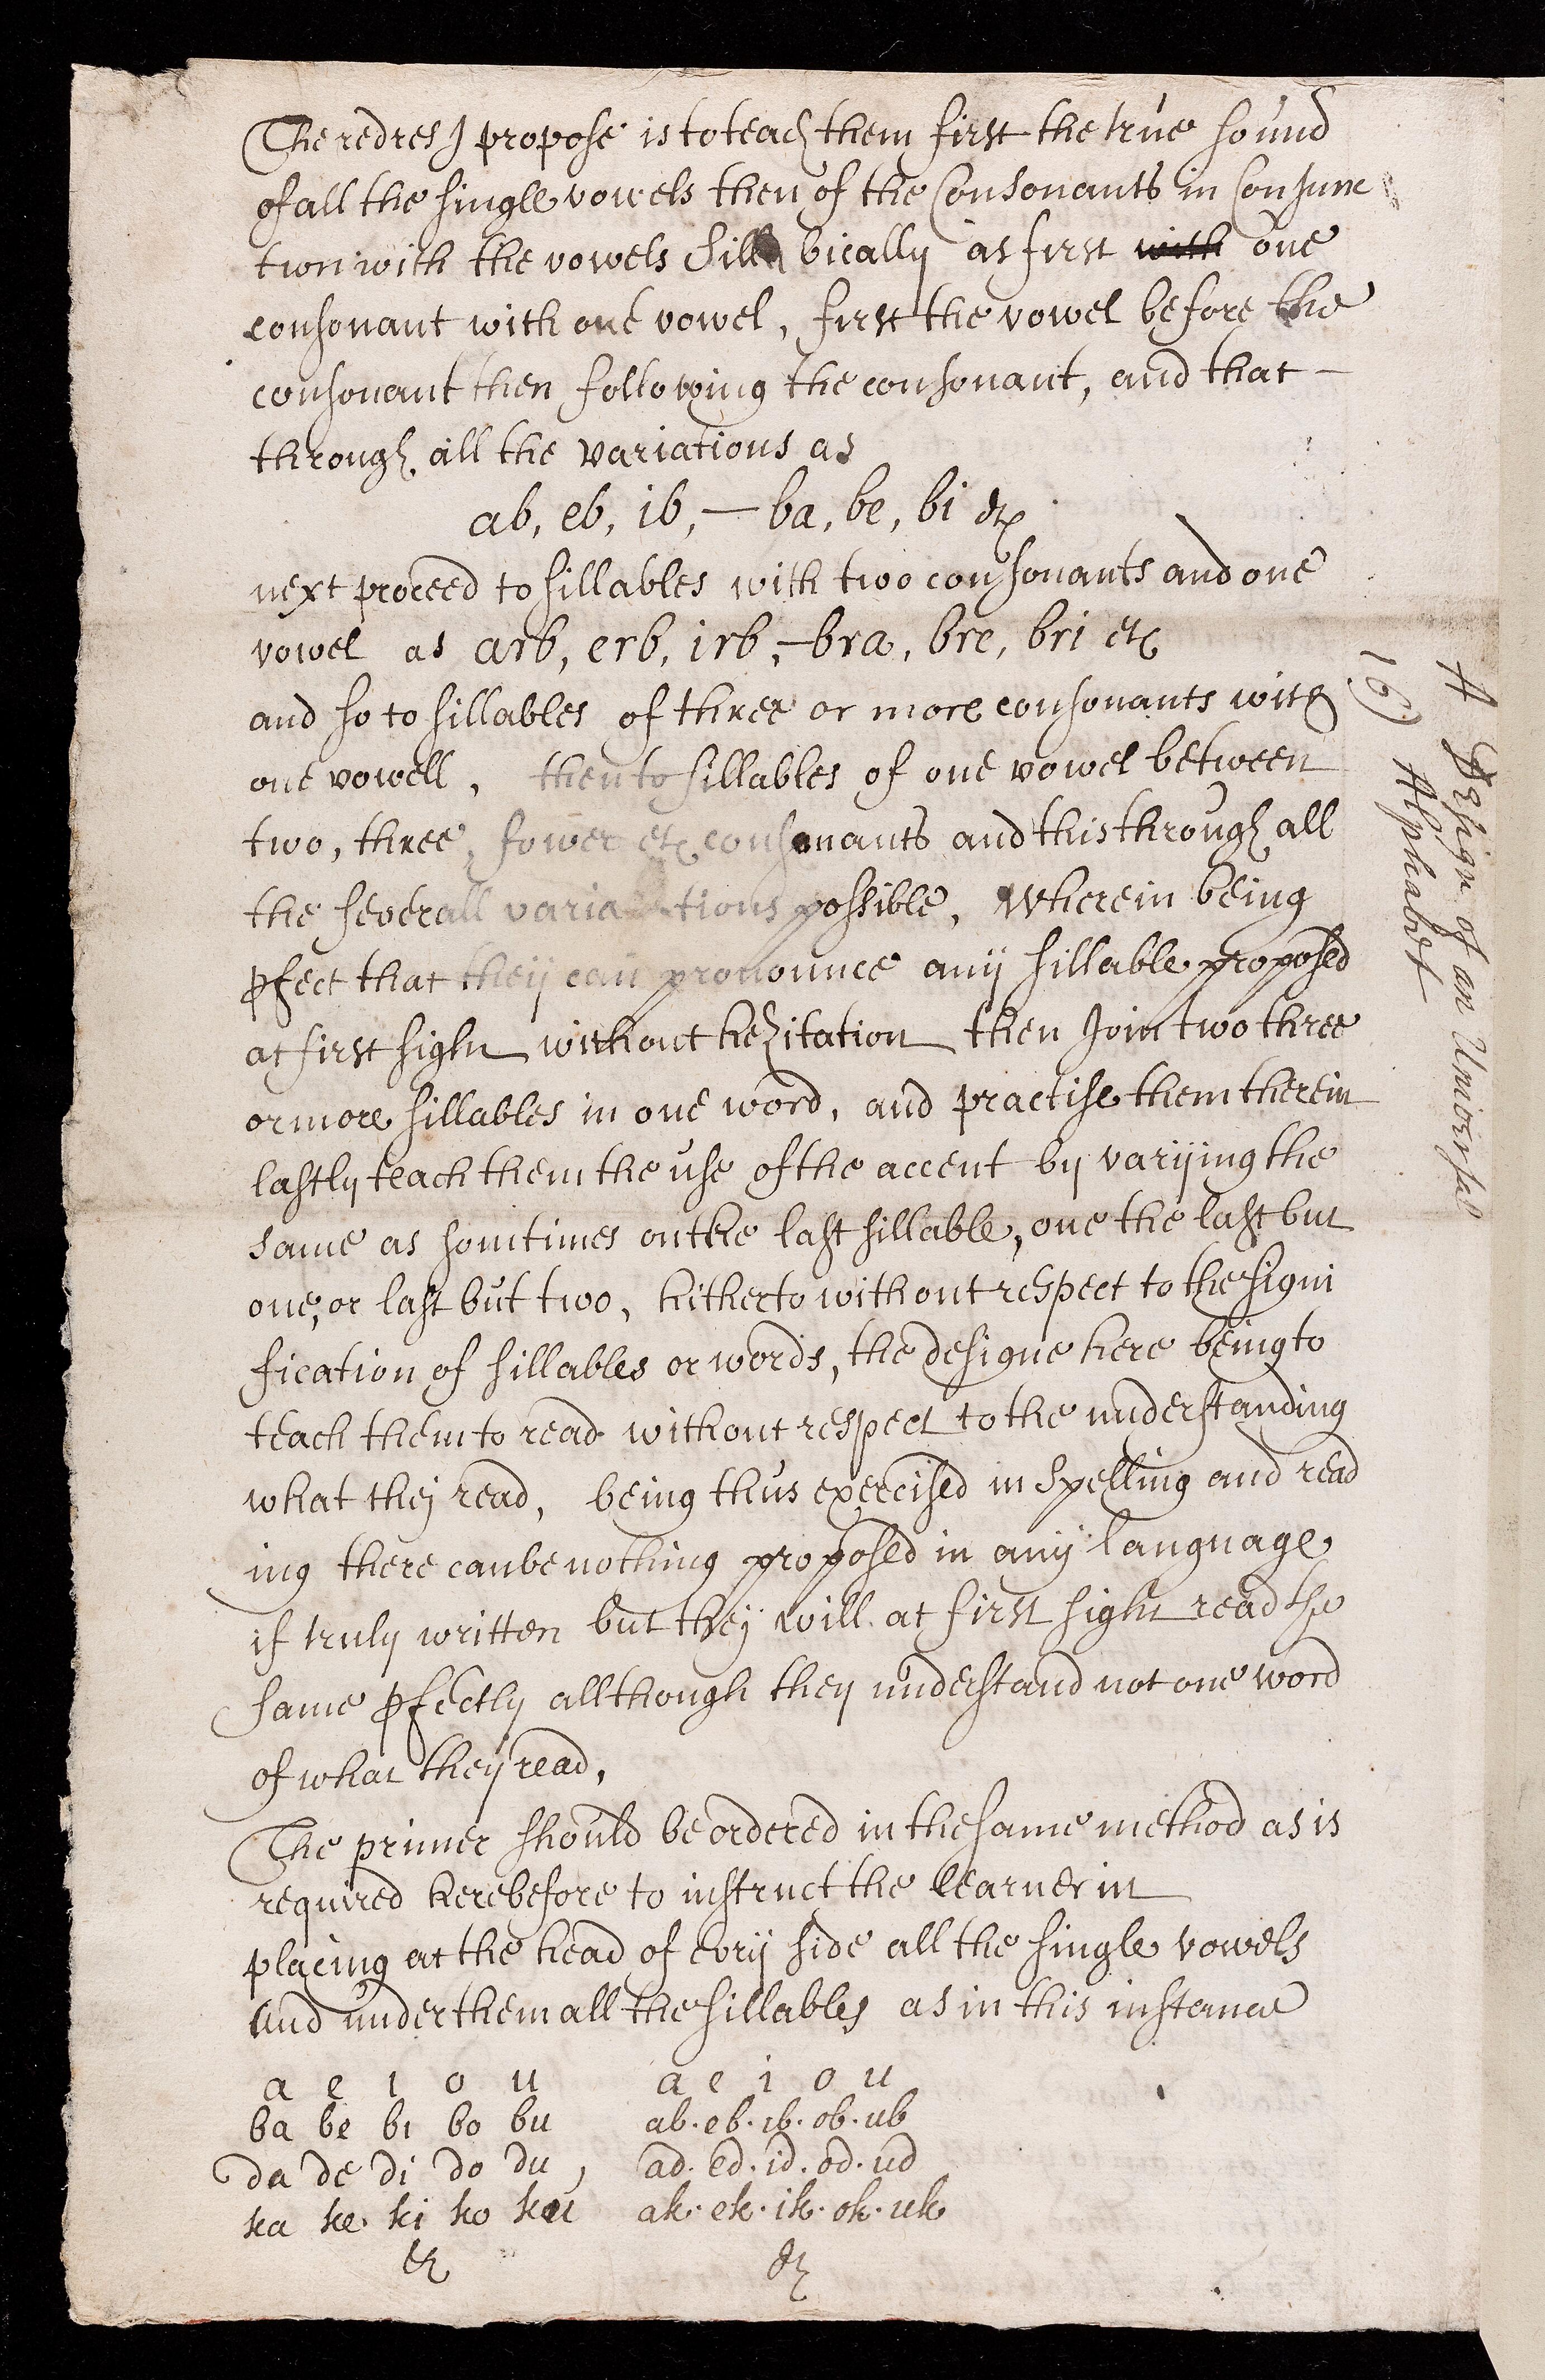 The redres I propose is to teach them first the true sound
of all the single vowels then of the Consonants in Conjunc
tion with the vowels Sillabically as first with one
consonant with one vowel, first the vowel before the
consonant then following the consonant, and that —
through all the variations as
ab, eb, ib, — ba, be, bi &c
next proceed to sillables with two consonants and one
vowel as arb, erb, irb, — bra, bre, bri etc
and so to sillables of three or more consonants with
one vowell, then to sillables of one vowel between
two, three, fower etc consonants and this through all
the severall variations possible, Wherein being
pfect that they can pronounce any sillable proposed
at first sight without hezitation then Join two three
or more sillables in one word, and practise them therein
lastly teach them the use of the accent by varying the
same as somtimes on the last sillable, one the last but
one, or last but two, hitherto without respect to the signi
fication of sillables or words, the designe here being to
teach them to read without respect to the understanding
what they read, being thus exercised in Spelling and read
ing there can be nothing proposed in any language
if truly written but they will at first sight read the
same pfectly allthough they understand not one word
of what they read,
The primer should be ordered in the same method as is
required herebefore to instruct the learner in
placing at the head of evry side all the single vowels
And under them all the sillables as in this instance
a e i o u a e i o u
ba be bi bo bu ab. eb. ib. ob. ub
da de di do du, ad. ed. id. od. ud
ka ke ki ko ku ak. ek. ik. ok. uk
&c &c
A Design of an Universal
16) Alphabet